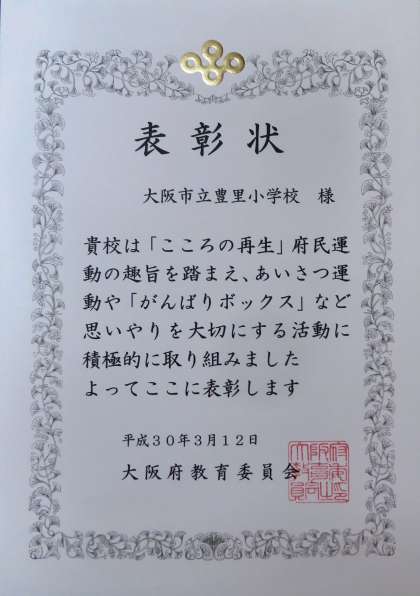 表彰状
大阪市立豊里小学校　様
貴校は「こころの再生」府民運
動の趣旨を踏まえ、あいさつ運
動や「がんばりボックス」など
思いやりを大切にする活動に
積極的に取り組みました
よってここに表彰します
平成30年3月12日
大阪府教育委員会